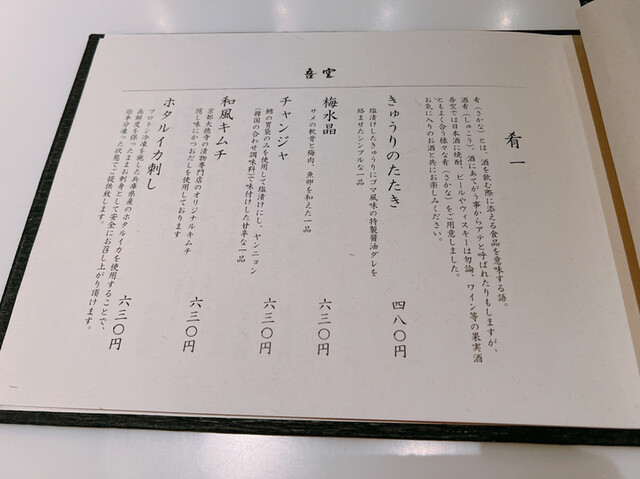 吾空
肴 一
肴（さかな）とは、酒を飲む際に添える食品を意味する語。
酒肴（しゅこう）、酒にあてがう事からアテと呼ばれたりもしますが、
吾空では日本酒に焼酎、ビールやウィスキーは勿論、ワイン等の果実酒
ともよく合う様々な肴（さかな）をご用意しました。
お気に入りのお酒と共にお楽しみください。
きゅうりのたたき
四八〇円
塩漬けしたきゅうりにゴマ風味の特製醤油ダレを
絡ませたシンプルな一品
梅水晶
六三〇円
サメの軟骨と梅肉、魚卵を和えた一品
チャンジャ
六三〇円
鱈の胃袋のみを使用して塩漬けにし、ヤンニョン
（韓国の合わせ調味料）で味付けした甘辛な一品
和風キムチ
六三〇円
京都大徳寺の漬物専門店のオリジナルキムチ
隠し味にかつおだしを使用しております
ホタルイカ刺し
六三〇円
プロトン冷凍を施した兵庫県産のホタルイカを使用することで、
高鮮度を保ったままお刺身として安全にお召し上がり頂けます。
※半冷凍の状態でご提供致します。